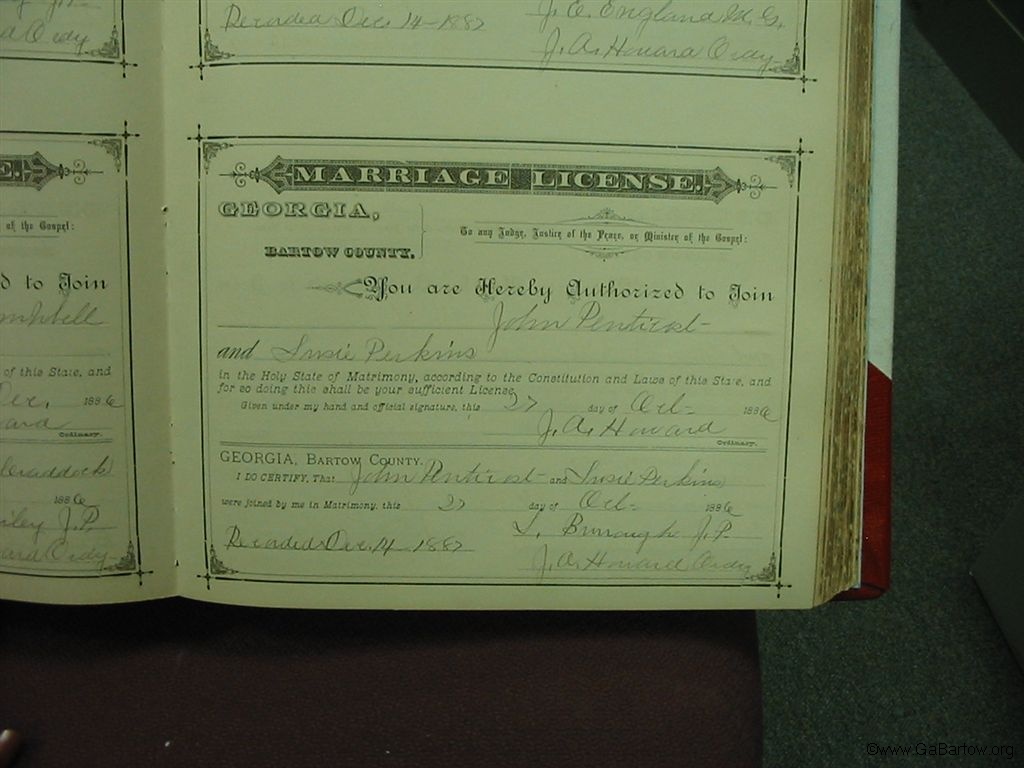 Recorded Dec. 14 1887
J. C. England M. G.
J. A. Howard Ordy
MARRIAGE LICENSE.
GEORGIA,
BARTOW COUNTY.
To any Judge, Justice of the Peace, or Minister of the Gospel:
You are Hereby Authorized to Join
John Penticost
and Susie Perkins
in the Holy State of Matrimony, according to the Constitution and Laws of this State, and
for so doing this shall be your sufficient License.
Given under my hand and official signature, this 27 day of Oct- 1886
J. A. Howard
Ordinary.
GEORGIA, BARTOW COUNTY.
I DO CERTIFY, That John Penticost and Susie Perkins
were joined by me in Matrimony, this 27 day of Oct- 1886
Burroughs J. P.
Recorded Dec. 14 1887
J. A. Howard Ordy
E.
of the Gospel:
d to Join
mpbell
of this State, and
Dec. 1886
ward
Ordinary.
Craddock
1886
iley J. P.
ward Ordy
©www.GaBartow.org